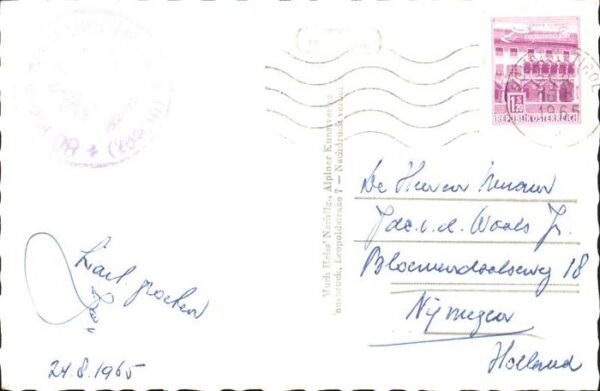 1.20
S
REPUBLIK ÖSTERREICH
TIROL
1965
Much Heiss' Nachflg., Alpiner Kunstverlag
Innsbruck, Leopoldstraße 7 — Nachdruck verboten
De Heeren
Jac. v. d. Waals Jr.
Bloemendaalseweg 18
Nijmegen
Holland
Hart. groeten
24.8.1965